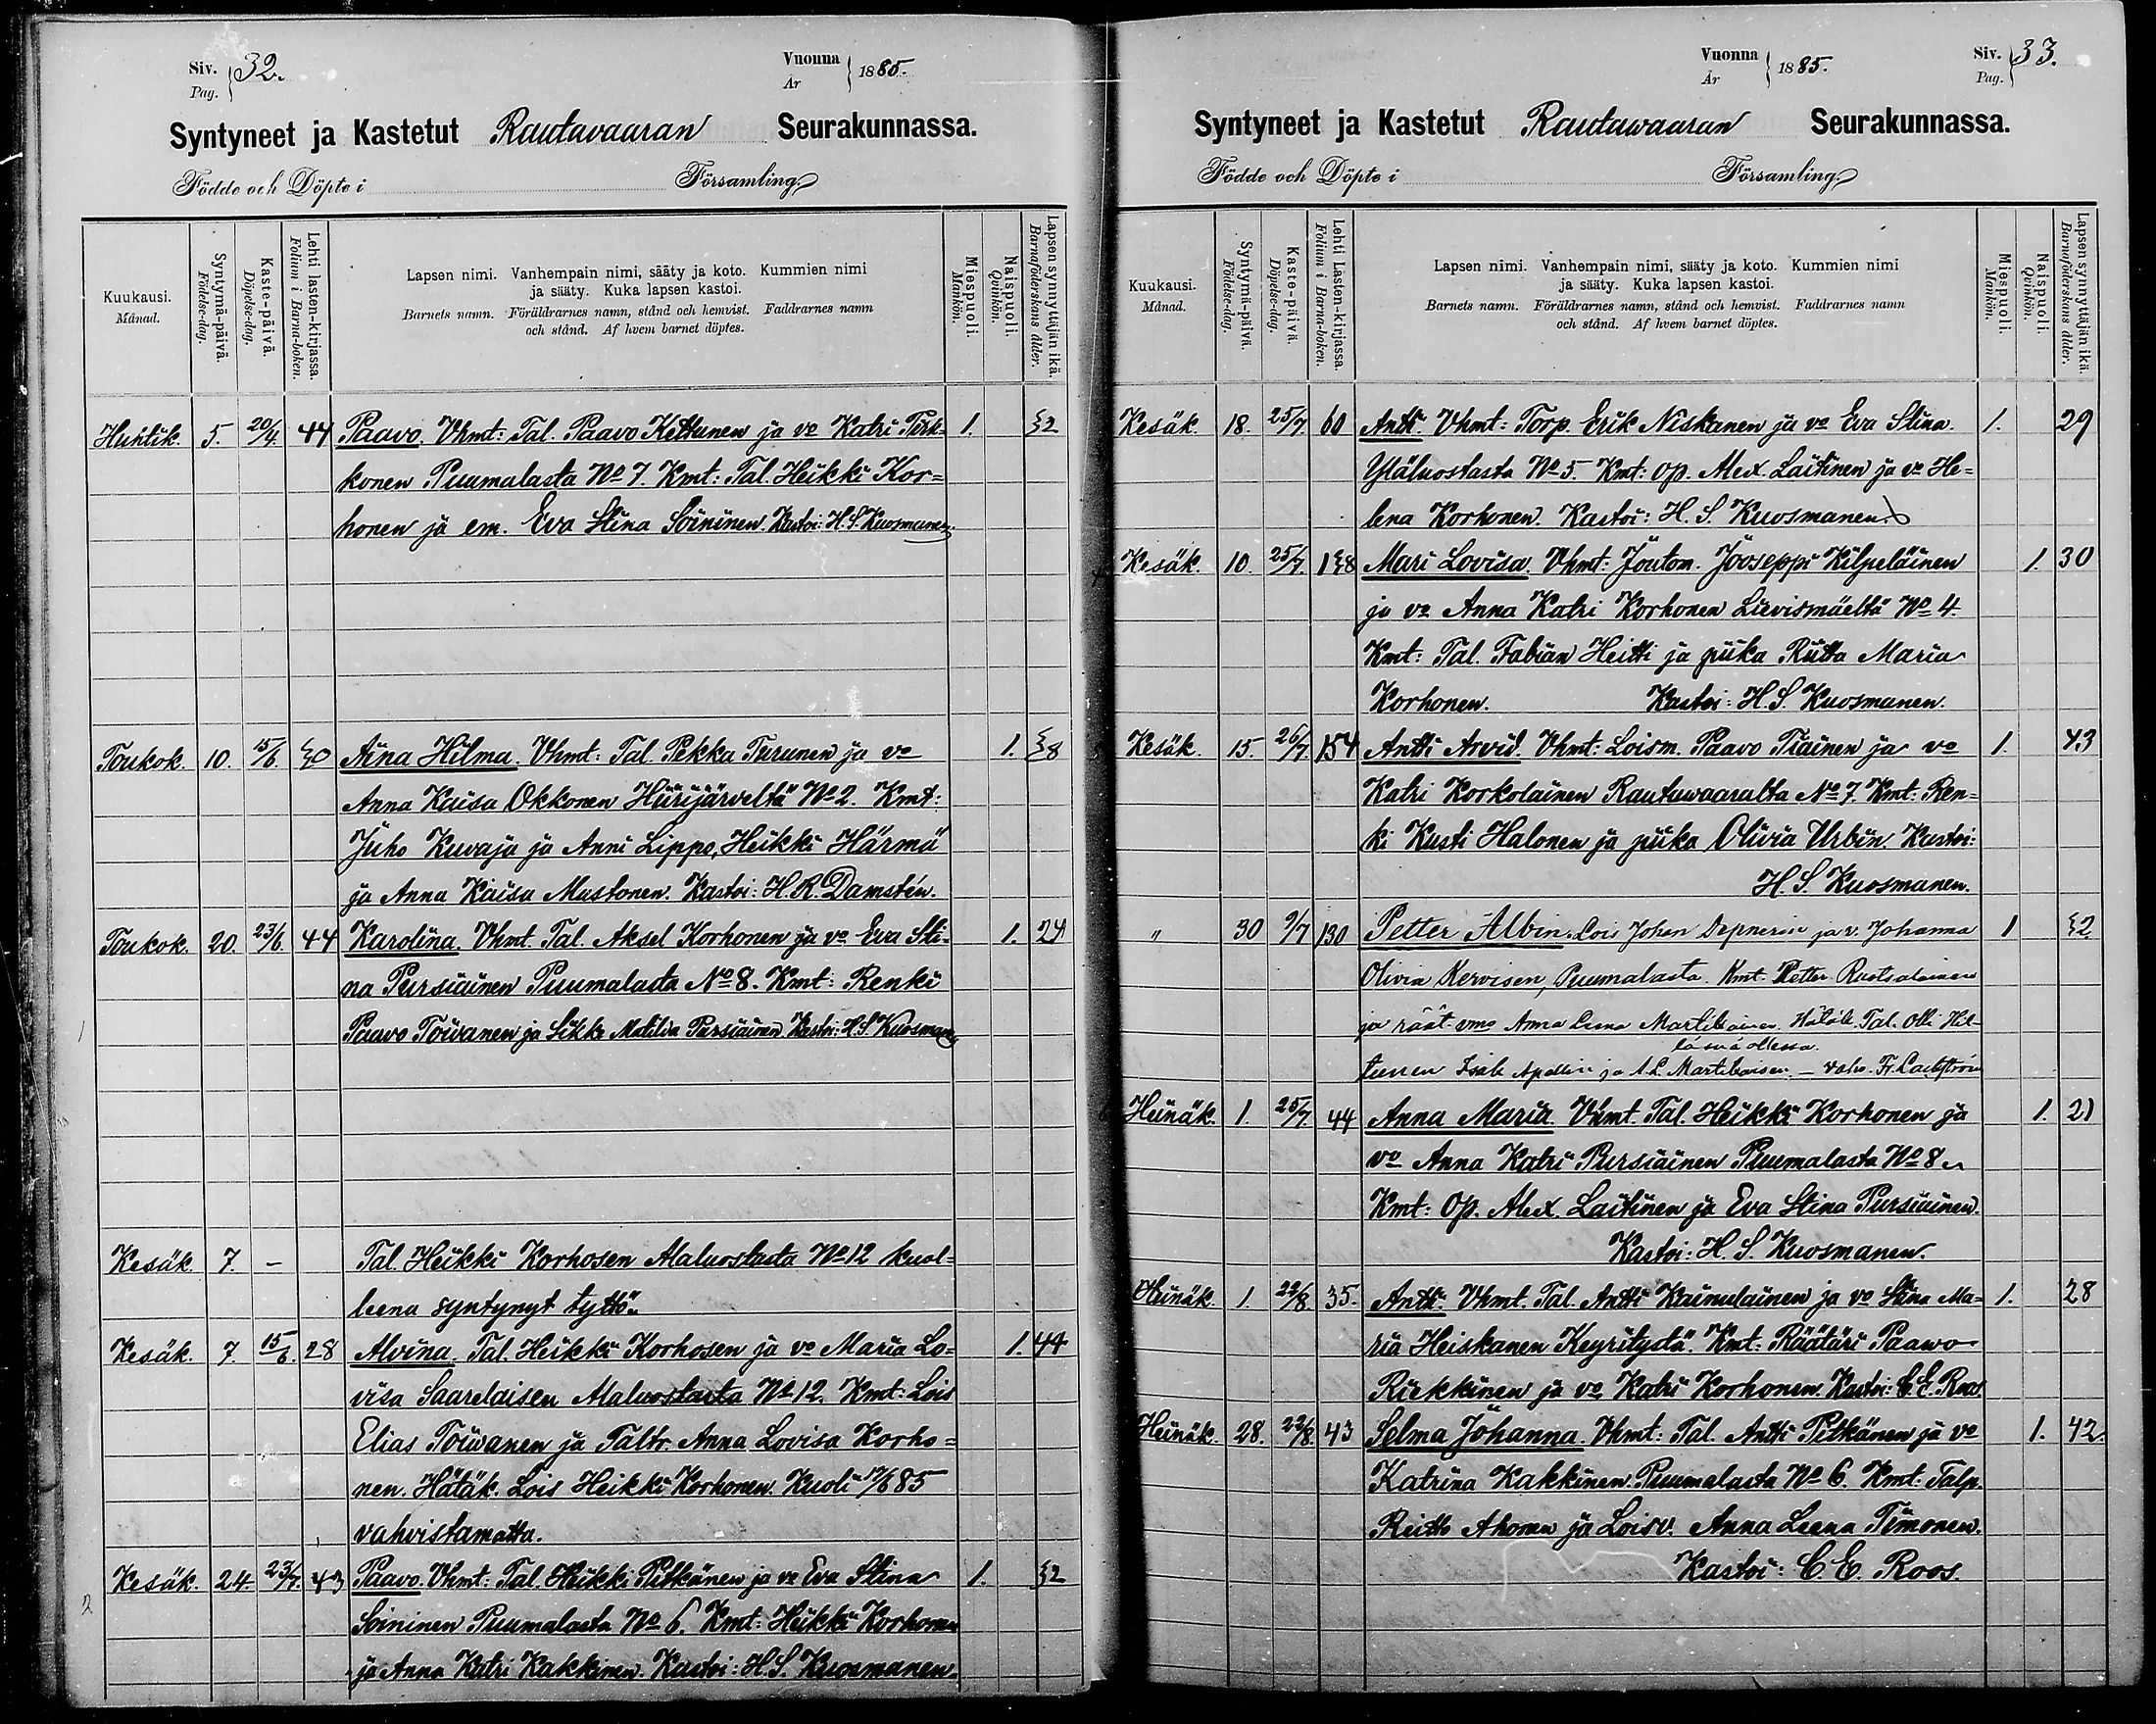 Siv. 32.
Pag.
Vuonna 1885.
År
Syntyneet ja Kastetut Rautavaaran Seurakunnassa.
Födde och Döpte i Församling.
Kuukausi.
Månad.
Syntymä-päivä.
Födelse-dag.
Kaste-päivä.
Döpelse-dag.
Lehti lasten-kirjassa.
Folium i Barna-boken.
Lapsen nimi. Vanhempain nimi, sääty ja koto. Kummien nimi
ja sääty. Kuka lapsen kastoi.
Barnets namn. Föräldrarnes namn, stånd och hemvist. Faddrarnes namn
och stånd. Af hvem barnet döptes.
Miespuoli.
Mankön.
Naispuoli.
Qvinkön.
Lapsen synnyttäjän ikä.
Barnaföderskans ålder.
Huhtik. 5. 20/4. 44 Paavo. Vhmt: Tal. Paavo Kettunen ja vo Katri Tirk- 1. 32
konen Puumalasta No 7. Kmt: Tal. Heikki Kor=
honen ja em. Eva Stina Soininen. Kastoi: H. S. Kuosmanen.
Toukok. 10. 15/6. 30 Aina Hilma. Vhmt: Tal. Pekka Turunen ja vo 1. 38
Anna Kaisa Okkonen Hiirijärveltä No 2. Kmt:
Juho Kuvaja ja Anni Lippo, Heikki Härmä
ja Anna Kaisa Mustonen. Kastoi: H. R. Damstén.
Toukok. 20. 23/6. 44 Karolina. Vhmt. Tal. Aksel Korhonen ja vo Eva Sti- 1. 24
na Pursiainen Puumalasta No 8. Kmt: Renki
Paavo Toivanen ja Sikke Matilda Pursiainen. Kastoi: H. S. Kuosmanen
Kesäk. 7. - Tal. Heikki Korhosen Alaluostasta No 12 kuol=
leena syntynyt tyttö.
Kesäk. 7. 15/6. 28 Alvina. Tal. Heikki Korhosen ja vo Maria Lo= 1. 44
visa Saarelaisen Alaluostasta No 12. Kmt: Lois
Elias Toivanen ja Taltr. Anna Lovisa Korho=
nen. Hätäk. Lois Heikki Korhonen. Kuoli 12/6 85
vahvistamatta.
Kesäk. 24. 23/7. 43 Paavo. Vhmt: Tal. Heikki Pitkänen ja vo Eva Stina 1. 32
Soininen Puumalasta No 6. Kmt: Heikki Korhonen
ja Anna Katri Kakkinen. Kastoi: H. S. Kuosmanen.
Vuonna 1885.
År
Siv. 33.
Pag.
Syntyneet ja Kastetut Rautawaaran Seurakunnassa.
Födde och Döpte i Församling.
Kuukausi.
Månad.
Syntymä-päivä.
Födelse-dag.
Kaste-päivä.
Döpelse-dag.
Lehti Lasten-kirjassa.
Folium i Barna-boken.
Lapsen nimi. Vanhempain nimi, sääty ja koto. Kummien nimi
ja sääty. Kuka lapsen kastoi.
Barnets namn. Föräldrarnes namn, stånd och hemvist. Faddrarnes namn
och stånd. Af hvem barnet döptes.
Miespuoli.
Mankön.
Naispuoli.
Qvinkön.
Lapsen synnyttäjän ikä.
Barnaföderskans ålder.
Kesäk. 18. 25/7. 60 Antti. Vhmt: Torp. Erik Niskanen ja vo Eva Stina 1. 29
Yläluostasta No 5. Kmt: op. Alex. Laitinen ja vo He=
lena Korhonen. Kastoi: H. S. Kuosmanen.
Kesäk. 10. 25/7. 138 Mari Lovisa. Vhmt: Joutom. Jooseppi Kilpeläinen 1. 30
ja vo Anna Katri Korhonen Lievismäeltä No 4.
Kmt: Tal. Fabian Heitti ja piika Riitta Maria
Korhonen. Kastoi: H. S. Kuosmanen.
Kesäk. 15. 26/7. 154 Antti Arvid. Vhmt: Loism. Paavo Tiainen ja vo 1. 43
Katri Korkolainen Rautawaaralta No 7. Kmt: Ren=
ki Kusti Halonen ja piika Olivia Urbin. Kastoi:
H. S. Kuosmanen.
" 30 9/7 130 Petter Albin. Lois Johan ja v. Johanna 1 32
Olivia Kervisen, Puumalasta. Kmt. Petter Ruotsalainen
ja räät. vmo Anna Leena Martikainen. Hätäk. Tal. Olli Hil-
läsnä ollessa.
tunen ja A. L. Martikaisen. — vahv.
Heinäk. 1. 25/7. 44 Anna Maria. Vhmt. Tal. Heikki Korhonen ja 1. 21
vo Anna Katri Pursiainen Puumalasta No 8.
Kmt: Op. Alex. Laitinen ja Eva Stina Pursiainen.
Kastoi: H. S. Kuosmanen.
Heinäk. 1. 22/8. 35. Antti. Vhmt. Tal. Antti Kainulainen ja vo Stina Ma= 1. 28
ria Heiskanen Keyritystä. Kmt: Räätäri Paawo
Riekkinen ja vo Katri Korhonen. Kastoi: C. E. Roos.
Heinäk. 28. 22/8. 43 Selma Johanna. Vhmt: Tal. Antti Pitkänen ja vo 1. 42.
Katrina Kakkinen. Puumalasta No 6. Kmt: Talp.
Reitto Ahonen ja Loisv. Anna Leena Timonen.
Kastoi: C. E. Roos.